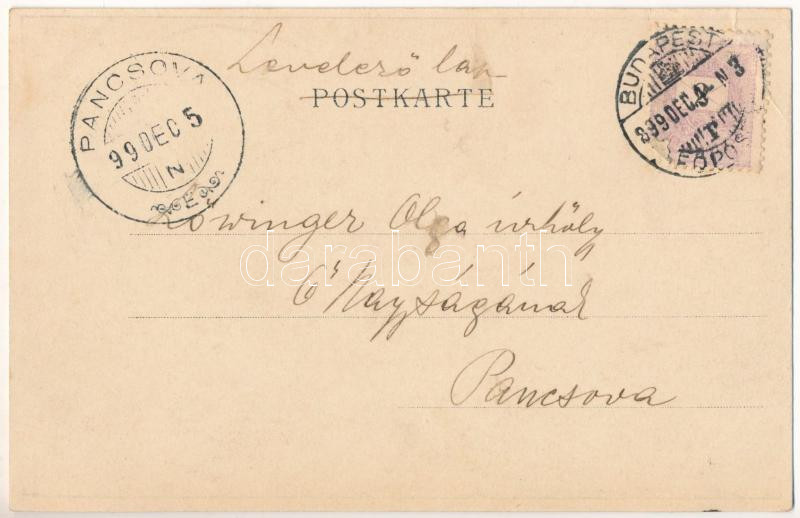 Levelező lap
POSTKARTE
BUDAPEST
899 DEC. 3 N 3
FŐPOS
PANCSOVA
99 DEC 5
N
E
Löwinger Olga úrhölgy
Ő Nagyságának
Pancsova
darabanth